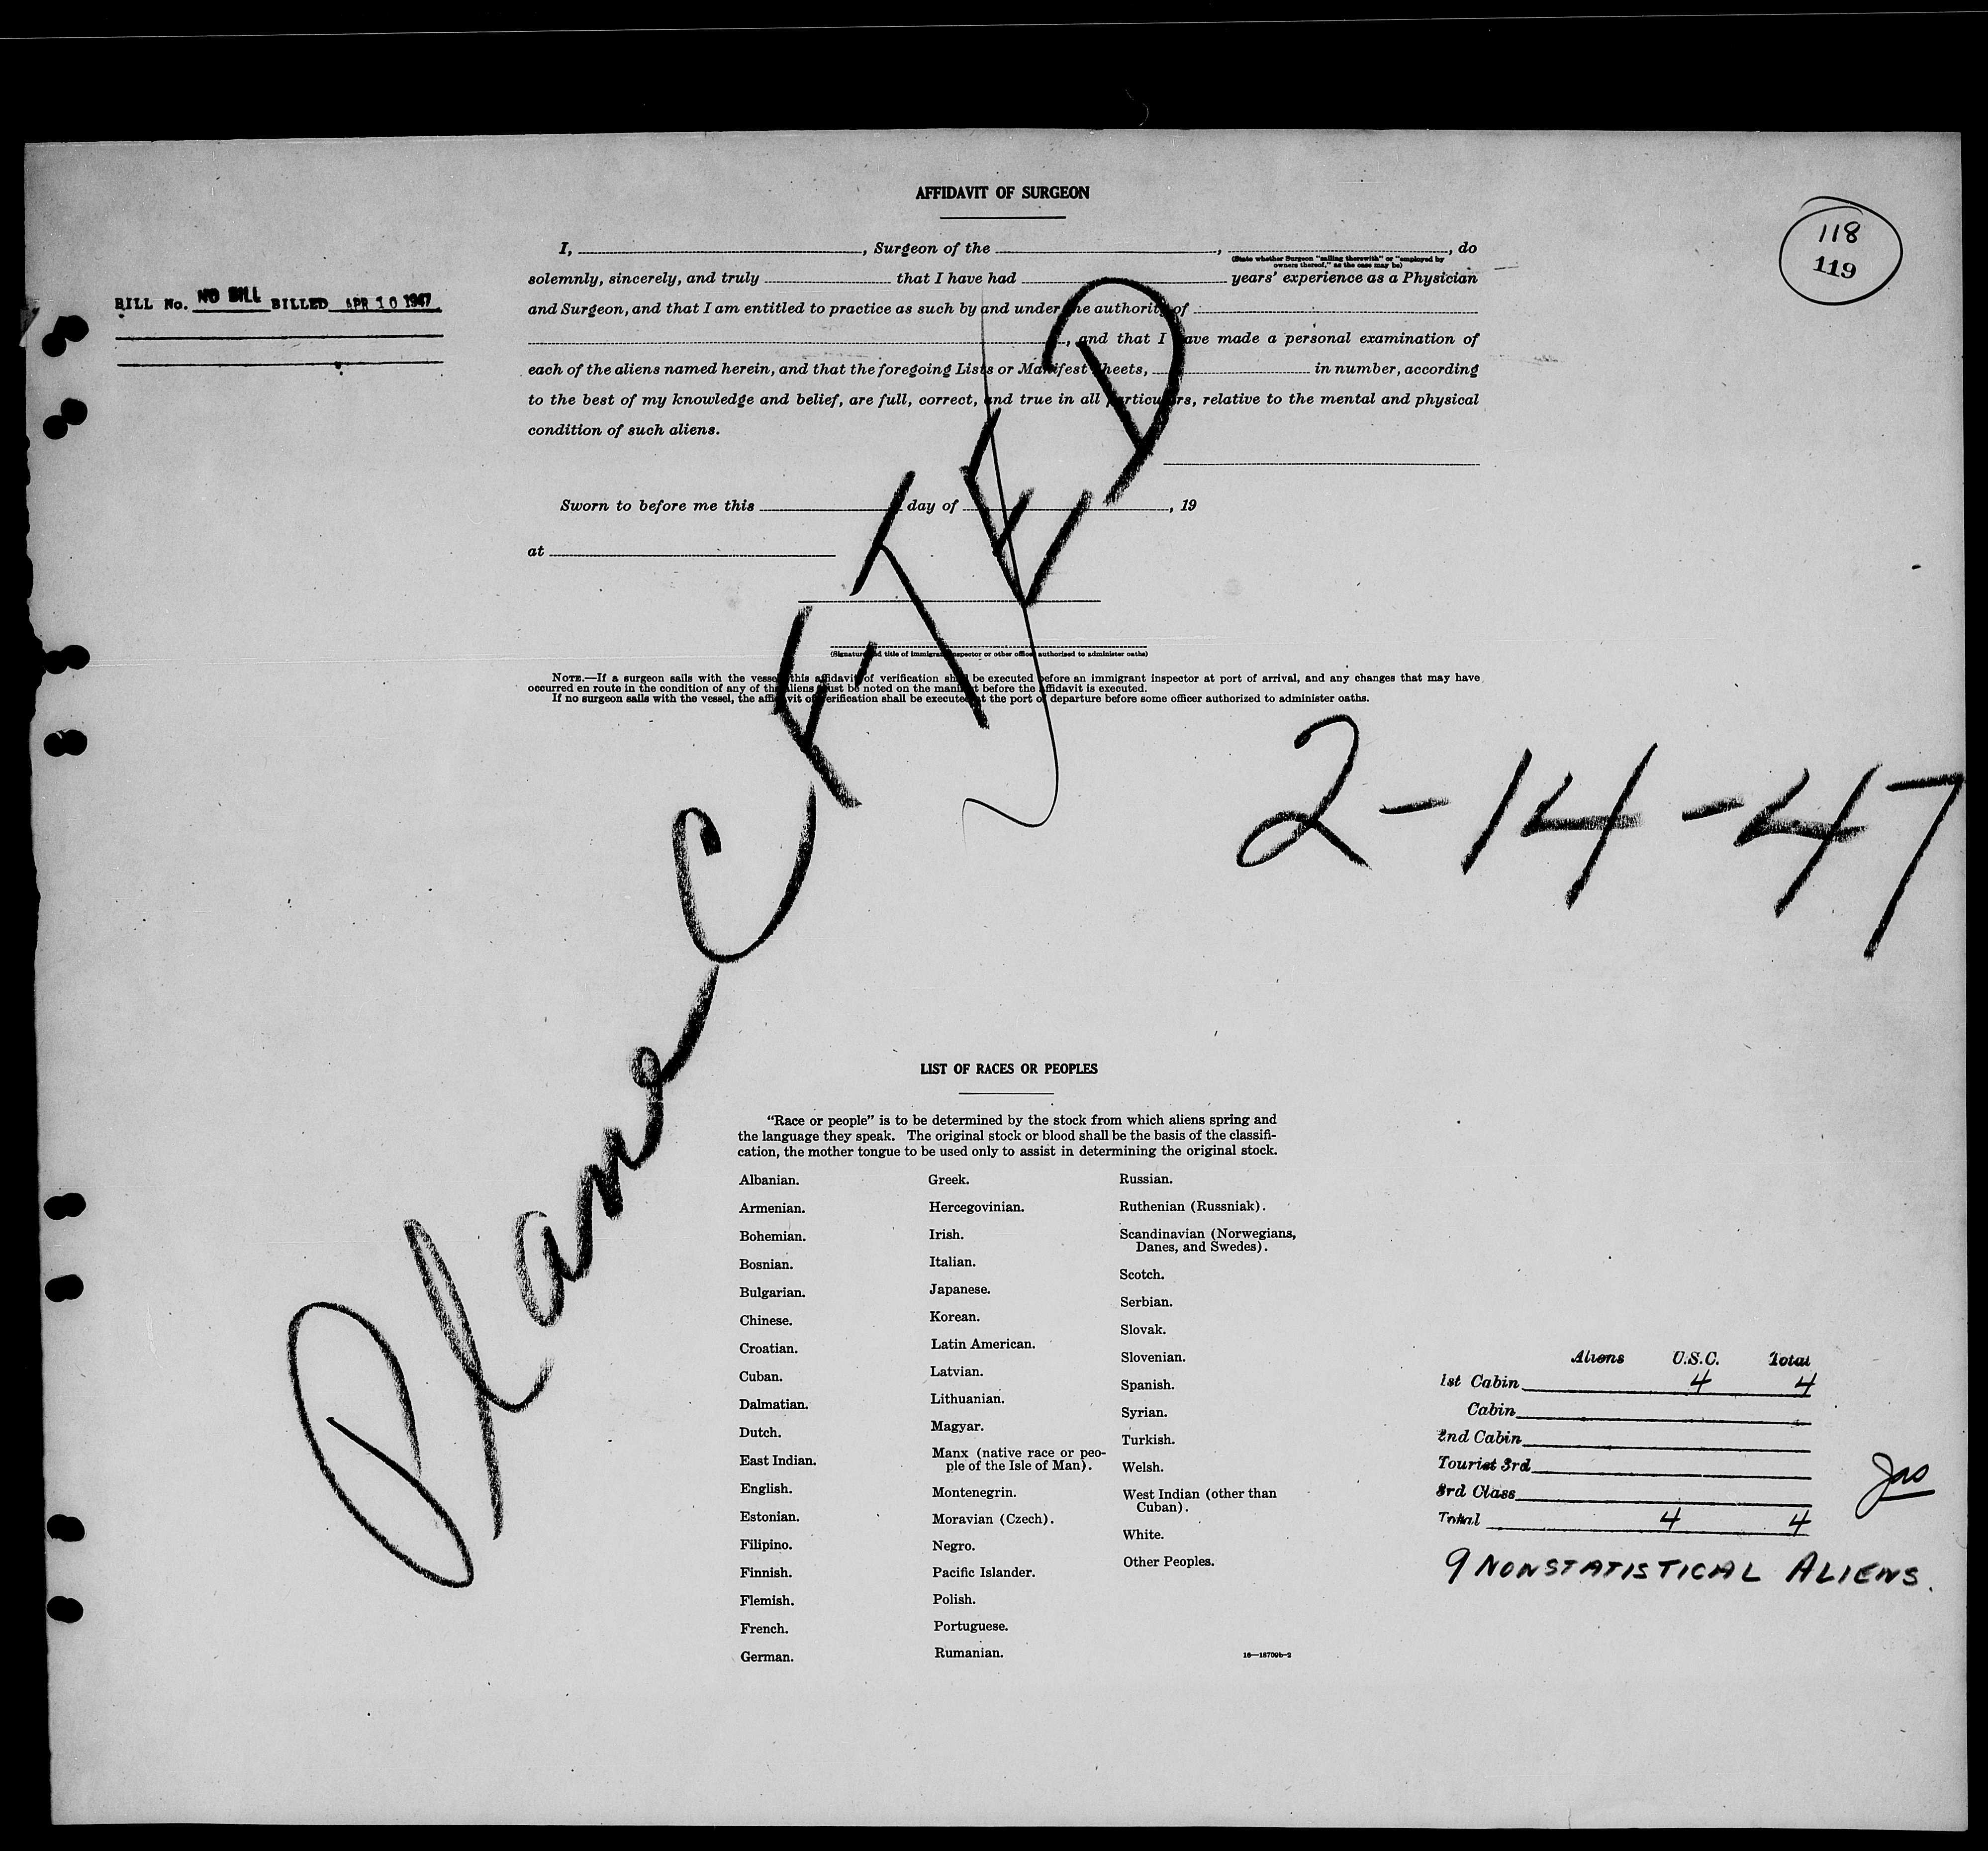 AFFIDAVIT OF SURGEON
118
119
BILL No. NO BILL BILLED APR 10 1947
I, , Surgeon of the , , do
(State whether Surgeon "sailing therewith" or "employed by
owners thereof," as the case may be)
solemnly, sincerely, and truly that I have had years' experience as a Physician
and Surgeon, and that I am entitled to practice as such by and under the authority of
, and that I have made a personal examination of
each of the aliens named herein, and that the foregoing Lists or Manifest Sheets, in number, according
to the best of my knowledge and belief, are full, correct, and true in all particulars, relative to the mental and physical
condition of such aliens.
Sworn to before me this day of , 19
at
(Signature and title of immigrant inspector or other officer authorized to administer oaths)
NOTE.—If a surgeon sails with the vessel, this affidavit of verification shall be executed before an immigrant inspector at port of arrival, and any changes that may have
occurred en route in the condition of any of the aliens must be noted on the manifest before the affidavit is executed.
If no surgeon sails with the vessel, the affidavit of verification shall be executed at the port of departure before some officer authorized to administer oaths.
Plane
2-14-47
LIST OF RACES OR PEOPLES
"Race or people" is to be determined by the stock from which aliens spring and
the language they speak. The original stock or blood shall be the basis of the classifi-
cation, the mother tongue to be used only to assist in determining the original stock.
Albanian.
Armenian.
Bohemian.
Bosnian.
Bulgarian.
Chinese.
Croatian.
Cuban.
Dalmatian.
Dutch.
East Indian.
English.
Estonian.
Filipino.
Finnish.
Flemish.
French.
German.
Greek.
Hercegovinian.
Irish.
Italian.
Japanese.
Korean.
Latin American.
Latvian.
Lithuanian.
Magyar.
Manx (native race or peo-
ple of the Isle of Man).
Montenegrin.
Moravian (Czech).
Negro.
Pacific Islander.
Polish.
Portuguese.
Rumanian.
Russian.
Ruthenian (Russniak).
Scandinavian (Norwegians,
Danes, and Swedes).
Scotch.
Serbian.
Slovak.
Slovenian.
Spanish.
Syrian.
Turkish.
Welsh.
West Indian (other than
Cuban).
White.
Other Peoples.
16—18709b-2
Aliens U.S.C. Total
1st Cabin 4 4
Cabin
2nd Cabin
Tourist 3rd
3rd Class
Total 4 4
9 NONSTATISTICAL ALIENS.